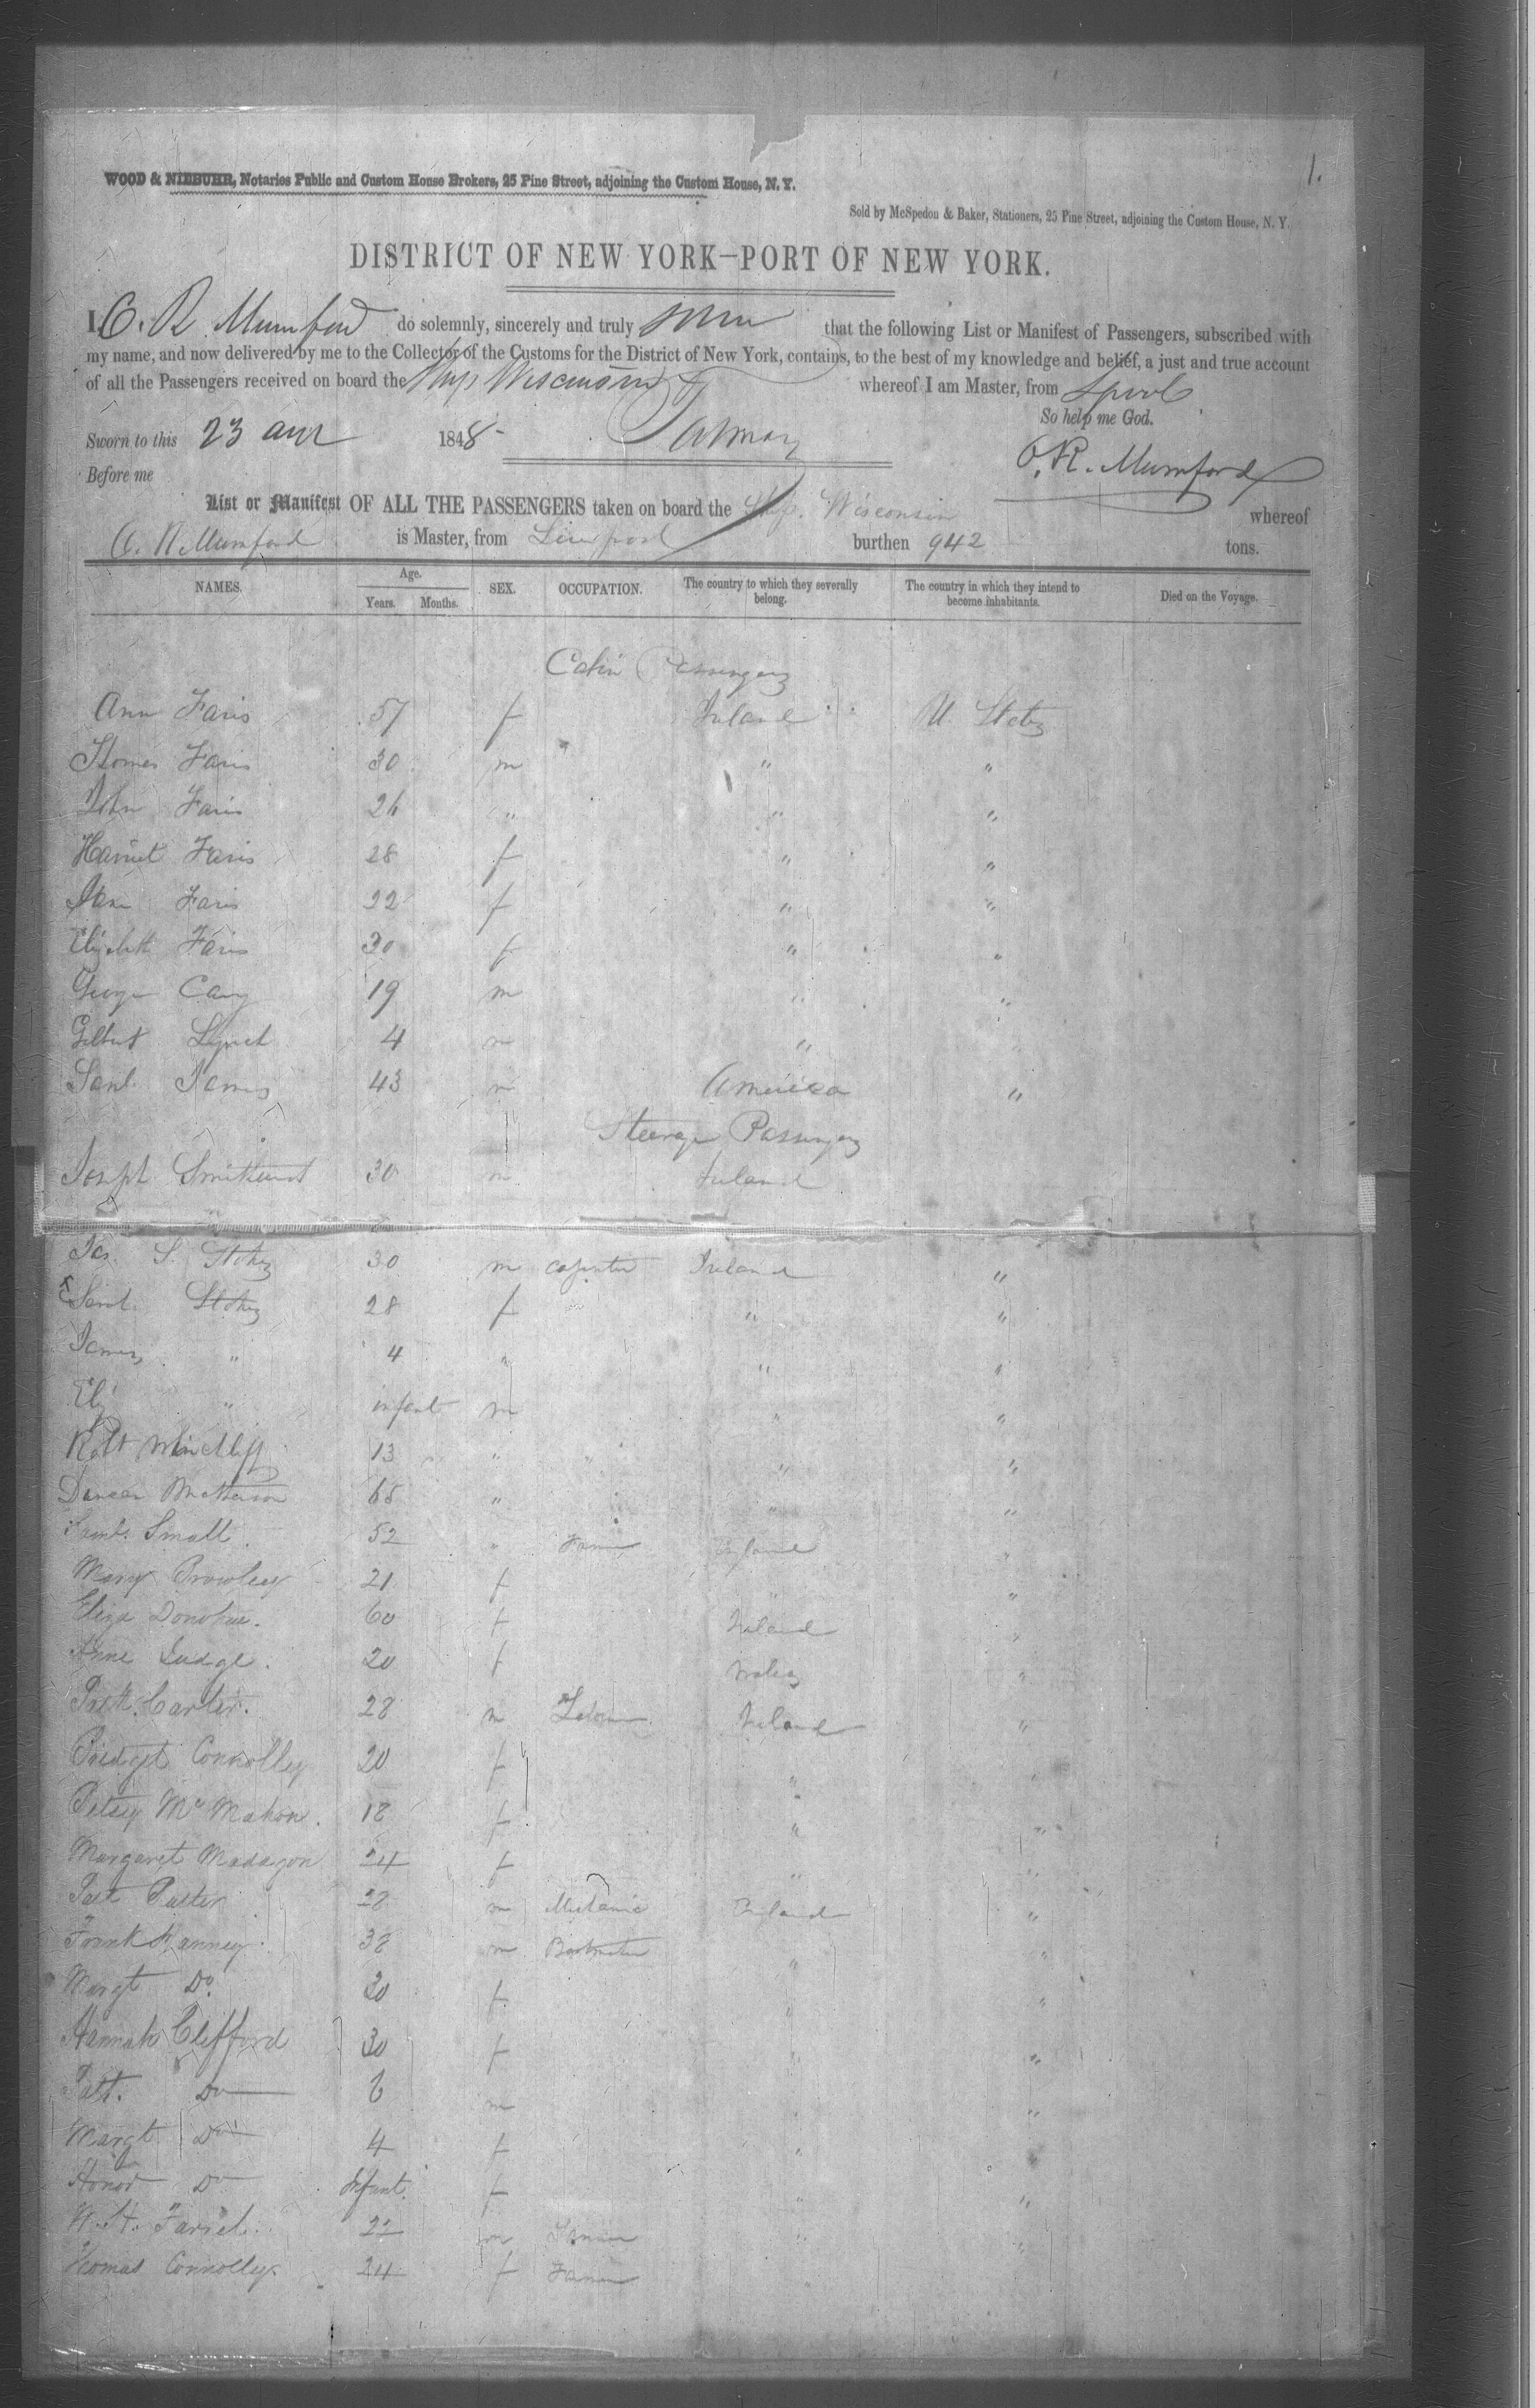 1.
WOOD & NIEBUHR, Notaries Public and Custom House Brokers, 25 Pine Street, adjoining the Custom House, N. Y.
Sold by McSpedon & Baker, Stationers, 25 Pine Street, adjoining the Custom House, N. Y.
DISTRICT OF NEW YORK—PORT OF NEW YORK.
I, O. R. Mumford do solemnly, sincerely and truly that the following List or Manifest of Passengers, subscribed with
my name, and now delivered by me to the Collector of the Customs for the District of New York, contains, to the best of my knowledge and belief, a just and true account
of all the Passengers received on board the Ship Wisconsin whereof I am Master, from Lpool
So help me God.
Sworn to this 23 1848
O. R. Mumford
Before me
List or Manifest OF ALL THE PASSENGERS taken on board the Ship Wisconsin whereof
O. R. Mumford is Master, from Liverpool burthen 942 tons.
NAMES. Age. Years. Months. SEX. OCCUPATION. The country to which they severally belong. The country in which they intend to become inhabitants. Died on the Voyage.
Cabin Passengers
Ann Faris 57 f Ireland U. States
Thomas Faris 30 m " "
John Faris 26 " " "
Harriet Faris 28 f " "
Jane Faris 22 f " "
Elizabeth Faris 30 f " "
George 19 m " "
Gilbert Lynch 4 m "
Saml. James 43 m America "
Steerage Passengers
Joseph 30 m Ireland
Jas. S. Stokes 30 m Carpenter Ireland "
Stokes 28 f " "
James " 4 " " "
" infant m " "
Robt 13 " " " "
Duncan 65 " " "
Saml. Small 52 " Farmer "
Mary 21 f "
Eliza Donohue. 60 f Ireland "
Anne Judge. 20 f Wales "
Patk. Carter. 28 m Ireland "
Bridget Connolly 20 f " "
Betsey Mc Mahon. 18 f " "
Margaret 24 f " "
28 m Mechanic "
Frank 38 m " "
Margt Do. 30 f " "
Hannah Clifford 30 f " "
Patt. Do 6 m " "
Margt Do 4 f " "
Honor Do Infant. f " "
22 m " "
Thomas Connolly. 24 f Farmer